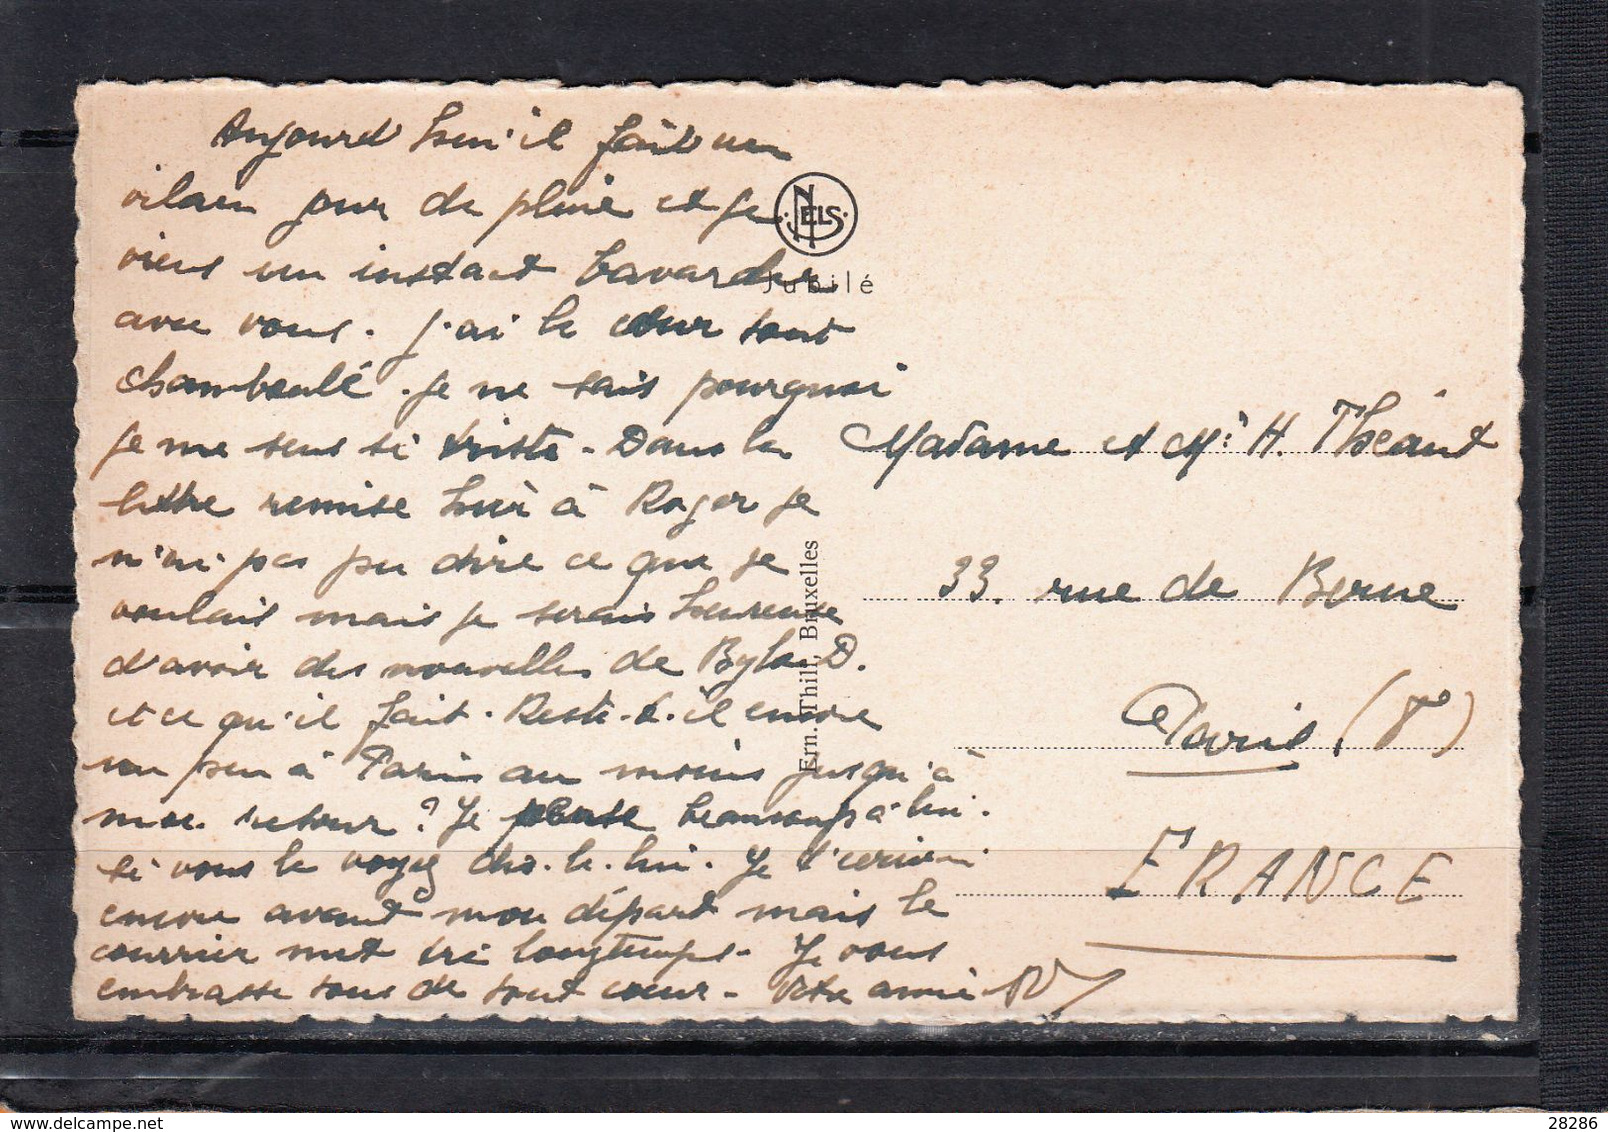 Aujourd'hui il fait un
vilain jour de pluie et je
viens un instant bavarder
avec vous. J'ai le cœur tout
chamboulé. Je ne sais pourquoi
je me sens si triste - Dans la
lettre remise hier à Roger je
n'ai pas pu dire ce que je
voulais mais je serais heureuse
d'avoir des nouvelles de Byland.
et ce qu'il fait. Reste-t-il encore
un peu à Paris au moins jusqu'à
mon retour? Je pense beaucoup à lui.
si vous le voyez dis-le-lui. Je t'écrirai
encore avant mon départ mais le
courrier met très longtemps. Je vous
embrasse tous de tout cœur - Votre amie
NELS
Jubilé
Ern. Thill, Bruxelles
Madame et Mr H. Théant
33. rue de Berne
Paris (8e)
FRANCE
delcampe.net
28286